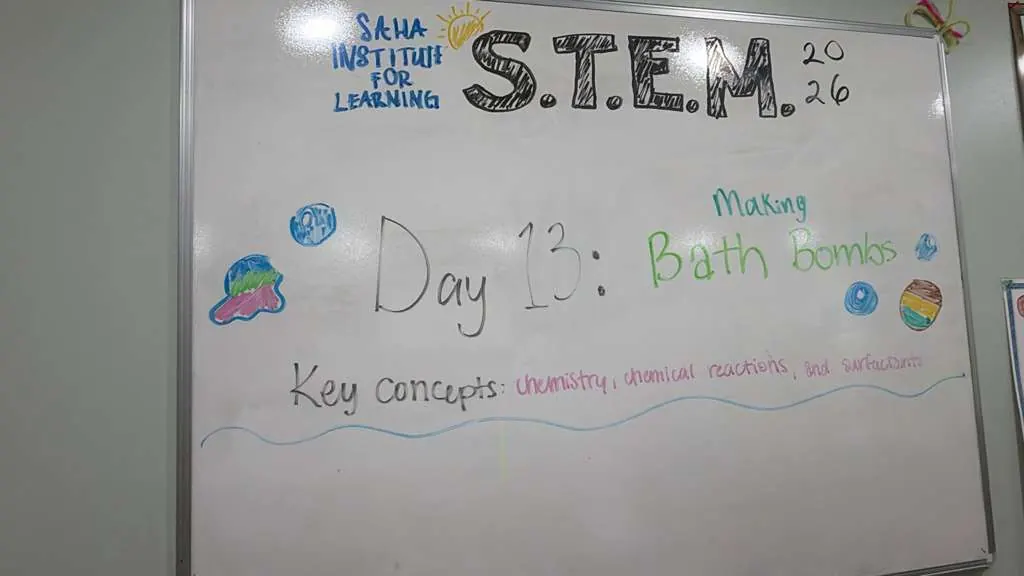 SAHA
INSTITUTE
FOR
LEARNING
S.T.E.M.
20
26
Day 13:
Making
Bath Bombs
Key concepts: chemistry, chemical reactions, and surfactants